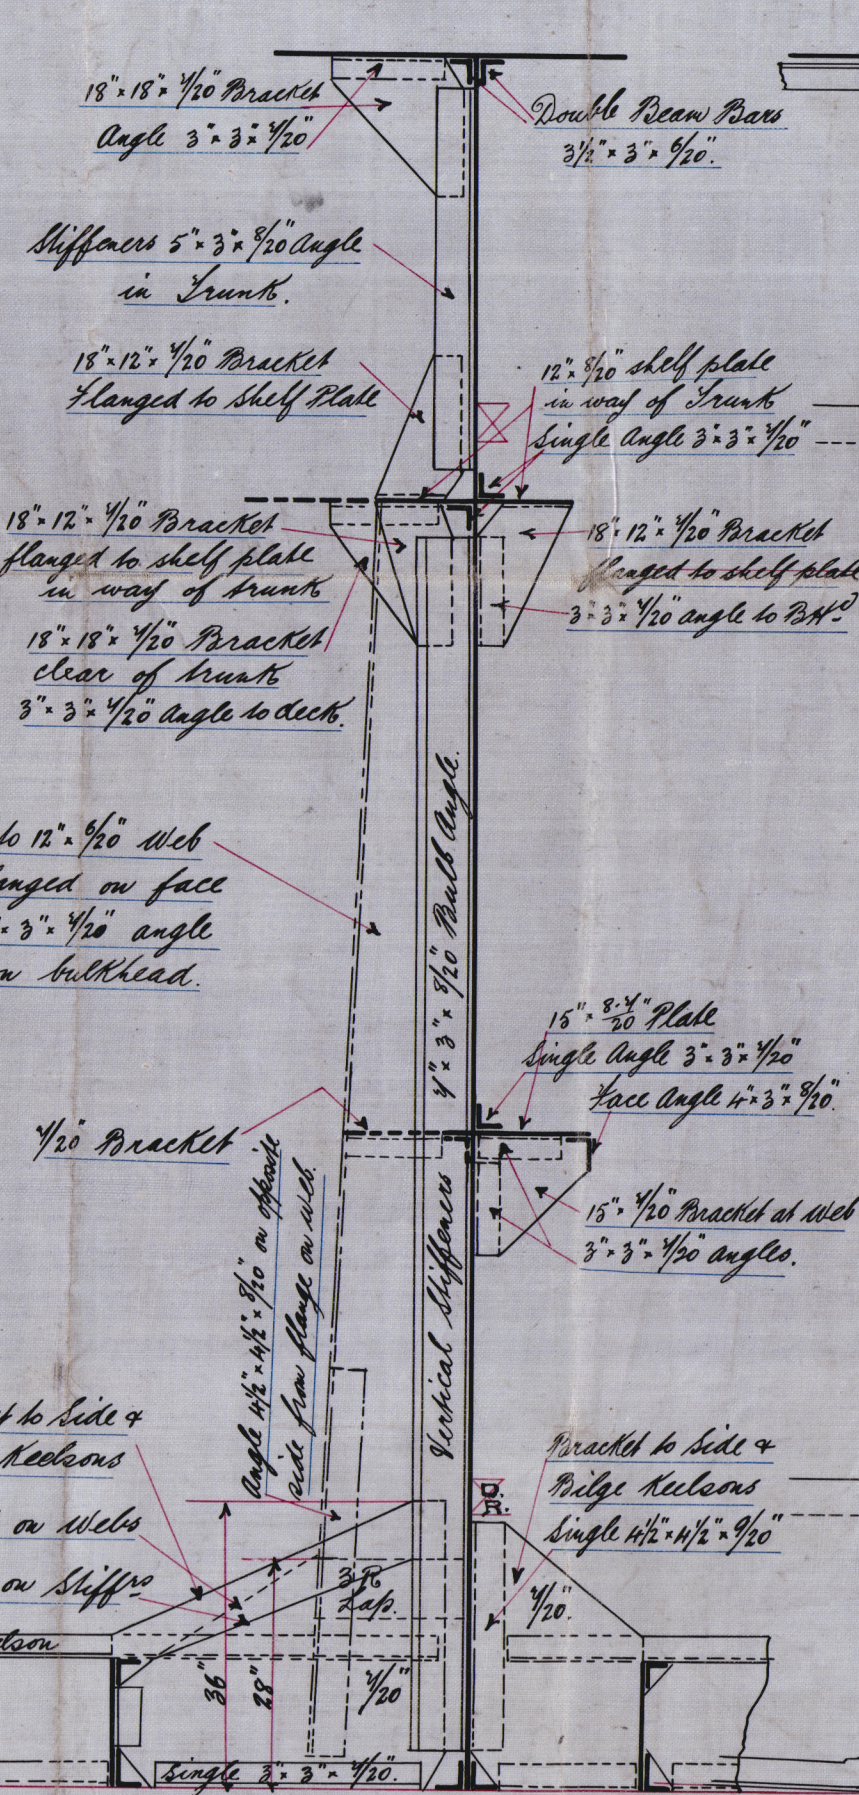 18" × 18" × 7/20" Bracket
Angle 3" × 3" × 7/20"
Double Beam Bars
3½" × 3" × 6/20".
Stiffeners 5" × 3" × 8/20" Angle
in Trunk.
18" × 12" × 7/20" Bracket
Flanged to Shelf Plate
12" × 8/20" shelf plate
in way of Trunk
Single Angle 3" × 3" × 7/20"
18" × 12" × 7/20" Bracket
flanged to shelf plate
in way of trunk
18" × 18" × 7/20" Bracket
clear of trunk
3" × 3" × 7/20" Angle to deck.
18" × 12" × 7/20" Bracket
flanged to shelf plate
3" × 3" × 7/20" angle to BHd
to 12" × 6/20" Web
on face
× 3" × 7/20" angle
bulkhead.
7" × 3" × 8/20" Bulb Angle.
Vertical Stiffeners
15" × 8-7/20" Plate
Single Angle 3" × 3" × 7/20"
Face Angle 4" × 3" × 8/20".
7/20" Bracket
15" × 7/20" Bracket at Web
3" × 3" × 7/20" angles.
Angle 4½" × 4½" × 8/20" on opposite
side from flange on web.
to Side &
Keelsons
on Webs
on Stiffrs
Bracket to Side &
Bilge Keelsons
Single 4½" × 4½" × 9/20"
D.
R.
3 R
Lap.
7/20".
36"
28"
7/20"
Single 3" × 3" × 7/20".